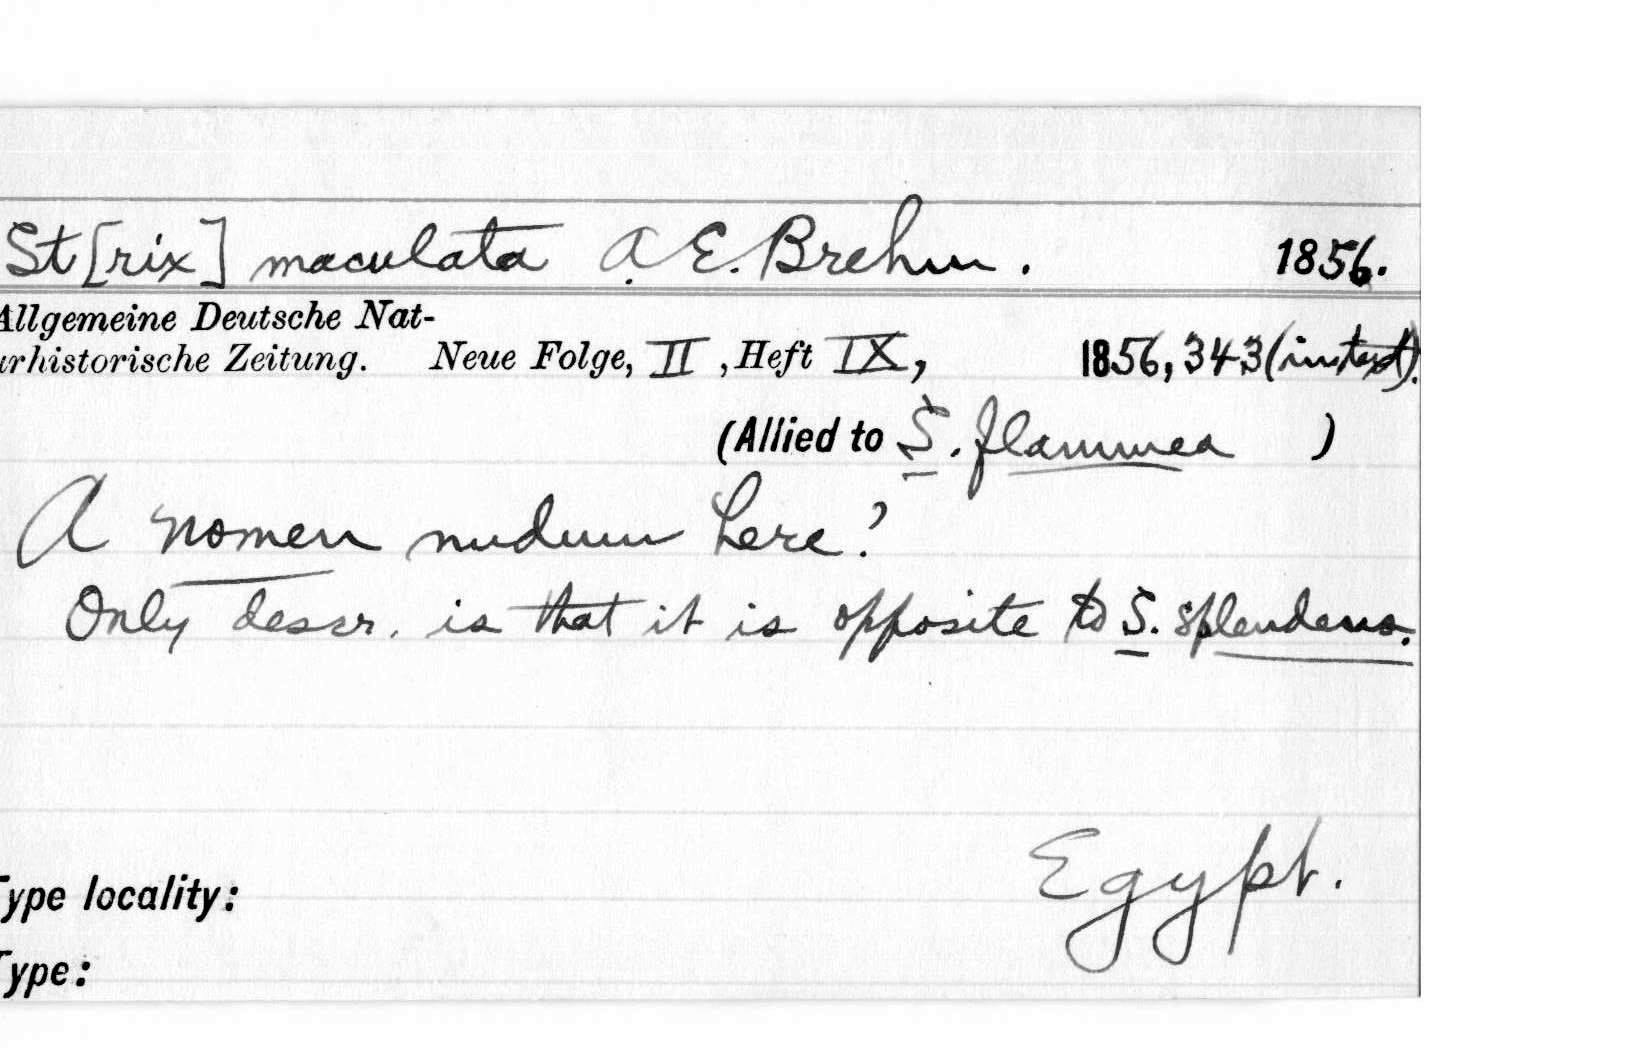 St[rix] maculata A. E. Brehm. 1856.
Allgemeine Deutsche Nat-
urhistorische Zeitung. Neue Folge, II, Heft IX, 1856, 343 (in text).
(Allied to S. flammea )
A nomen nudum here?
Only descr. is that it is opposite to S. splendens.
Type locality: Egypt.
Type: